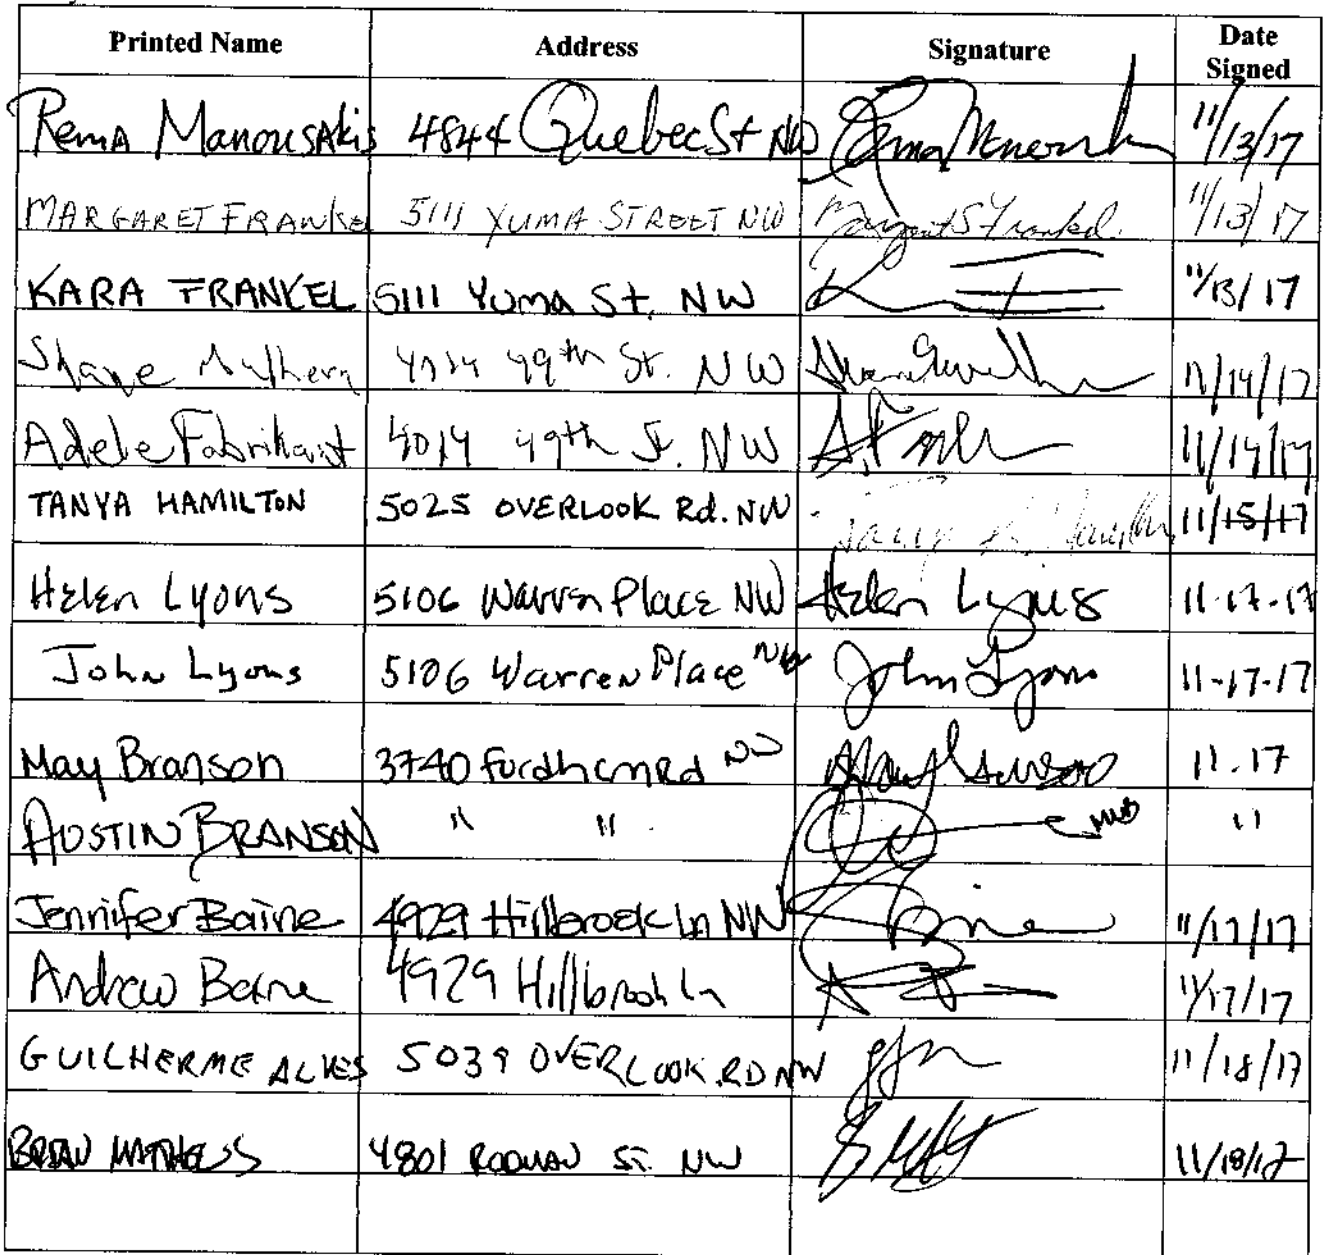 Printed Name Address Signature Date Signed
Rema Manousakis 4844 Quebec St NW 11/13/17
MARGARET FRANKEL 5111 YUMA STREET NW Margaret S Frankel 11/13/17
KARA FRANKEL 5111 Yuma St. NW 11/13/17
Shane Mulhern 49th St. NW 11/14/17
Adele Fabrikant 4014 49th St. NW 11/14/17
TANYA HAMILTON 5025 OVERLOOK Rd. NW 11/15/17
Helen Lyons 5106 Warren Place NW Helen Lyons 11-17-17
John Lyons 5106 Warren Place NW John Lyons 11-17-17
May Branson 3740 Fordham Rd NW May Branson 11.17
AUSTIN BRANSON " " "
Jennifer Baine 4929 Hillbrook Ln NW 11/17/17
Andrew Baine 4929 Hillbrook Ln 11/17/17
GUILHERME ALVES 5039 OVERLOOK RD NW 11/18/17
BRIAN MATHEWS 4801 RODMAN ST. NW 11/18/17